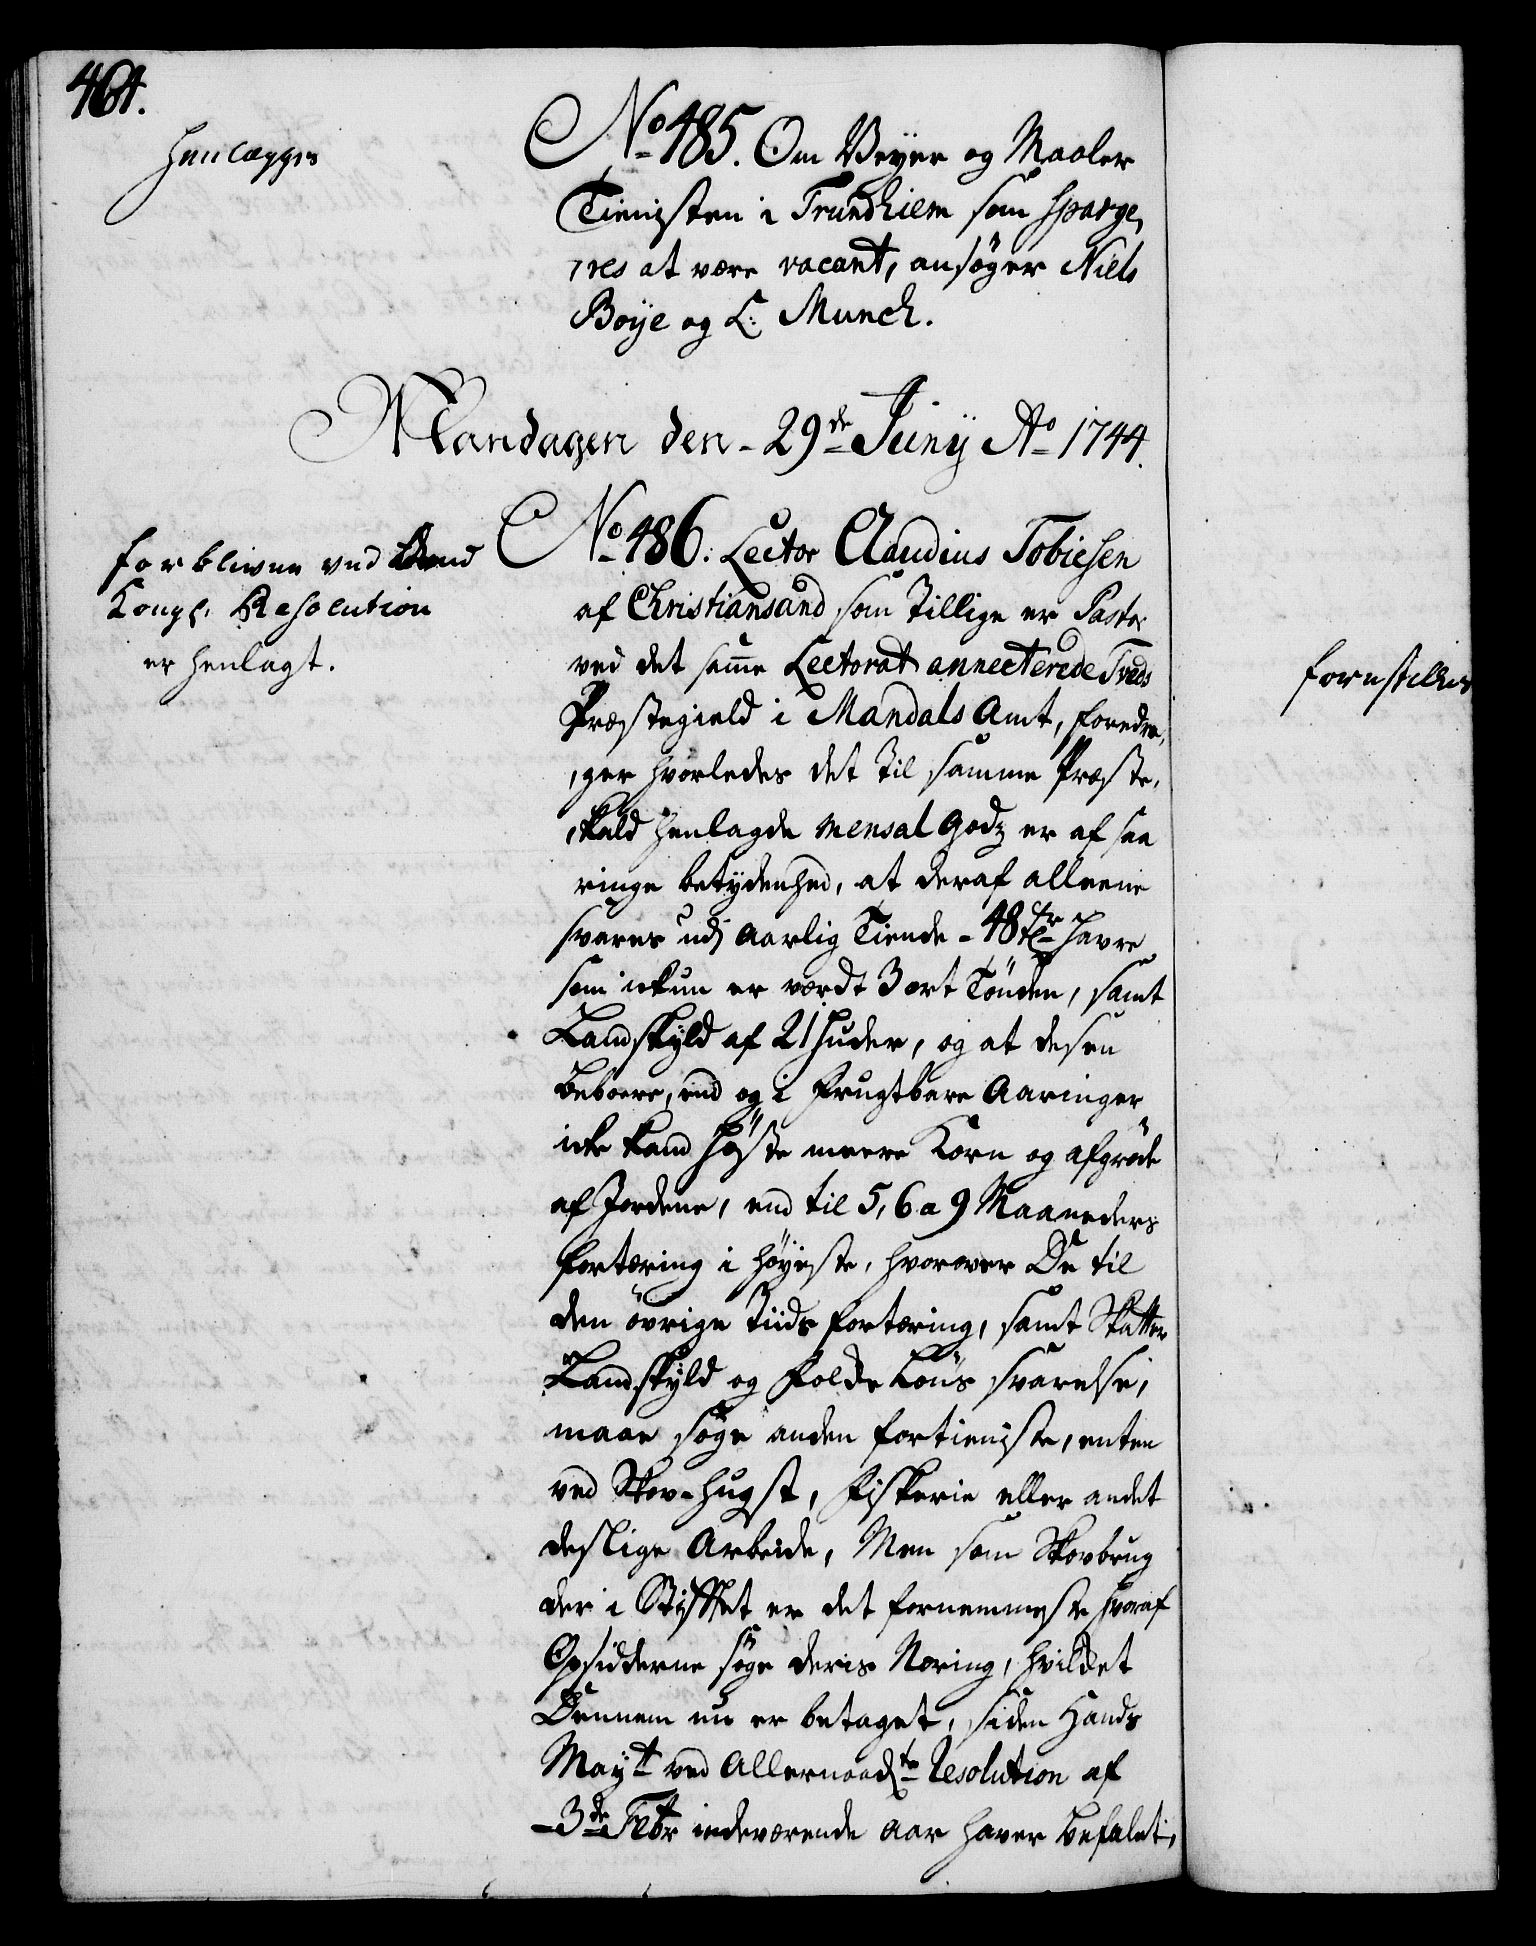 464.
Henlægges
No 485. Om Veyer og Maaler
Tienisten i Trundhiem som spørge,
,res at være vacant, ansøger Niels
Boye og L: Munch.
Mandagen den - 29de Junij Ao 1744.
forbliver ved
Kongl. Resolution
er henlagt.
No 486. Lector Claudius Tobiesen
af Christiansand som tillige er Pastor
ved det samme Lectorat annecterede Tveds
Præstegield i Mandals Amt, foredra,
,ger hvorledes det til samme Præste,
,kald henlagde mensal Godz er af saa
ringe betydenhed, at deraf alleene
svares udj aarlig Tiende - 48 tr havre
som ickun er værdt 3 ort Tønden, samt
Landskyld af 21 Huder, og at desen
beboere, end og i frugtbare Aaringer
icke kand høste meere Korn og afgrøde
af Jordene, end til 5, 6 a 9 Maaneders
fortæring i høyeste, hvorover De til
den övrige Tiids fortæring, samt Skatter
Landskyld og folde Løns svarelse,
maae søge anden fortieniste, enten
ved Skov-hugst, fiskerie eller andet
deslige Arbeide, Men som Skovbrug
der i Stifftet er det fornemmeste hvoraf
Opsidderne søge deris Næring, hvildet
Dennem nu er betaget, siden Hands
Mayt ved Allernaadte Resolution af
- 3de Febr indeværende aar haver befalet,
forestilles